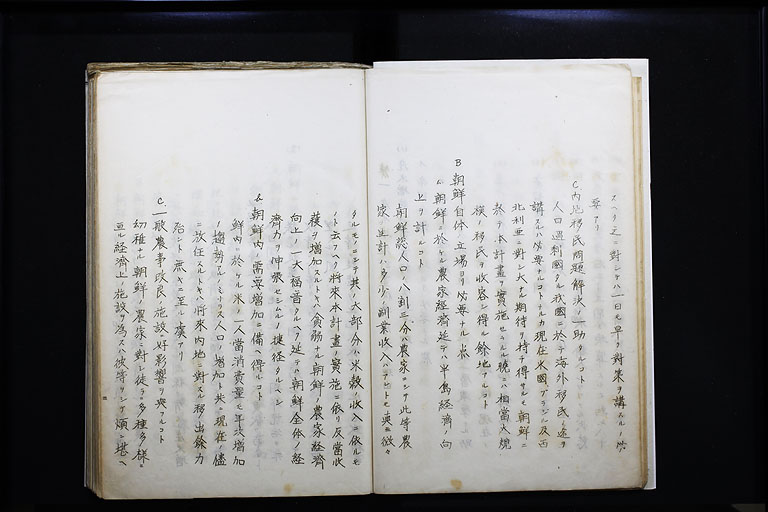 スヘク之ニ對シテハ一日モ早ク對策ヲ講スルノ必
要アリ
C 内地移民問題解決ノ一助タルコト
人口過剰國タル我國ニ於テ海外移民ノ途ヲ
講スルハ必要ナルコトナルカ現在米國ブラジル及西
北利亜ニ對シ大ナル期待ヲ持チ得サルモ朝鮮ニ
於テ本計畫ヲ實施セラルル曉ニハ相當大規
模ノ移民ヲ收容シ得ル餘地アルコト
B 朝鮮自体ノ立場ヨリ必要ナル点
a. 朝鮮ニ於ケル農家経済延テハ半島経済ノ向
上ヲ計ルコト
朝鮮総人口ノ八割三分ハ農家ニシテ此等農
家ノ生計ハ多少ノ副業收入ハアリトモ其ハ微々
タルモノニシテ其ノ大部分ハ米穀ノ收入ニ依ルモ
ノト云フヘク将來本計畫ノ實施ニ依リ反當收
穫ヲ増加スルトキハ貧弱ナル朝鮮ノ農家経済
向上ノ一大福音タルヘク延テハ朝鮮全体ノ経
濟力ヲ伸張セシムルノ捷径タルヘシ
b. 朝鮮内ノ需要増加ニ備ヘ得ルコト
鮮内ニ於ケル米ノ一人當消費量モ年次増加
ノ趨勢アルノミナラス人口ノ増加ト共ニ現在ノ儘
ニ放任スルトキハ将來内地ニ對スル移出餘力
殆ント無キニ至ル虞アリ
C. 一般農事改良ノ施設ニ好影響ヲ與フルコト
幼稚ナル朝鮮ノ農家ニ對シ徒ラニ多種多様ニ
亘ル経済上ノ施設ヲ為スハ彼等ヲシテ煩ニ堪ヘ